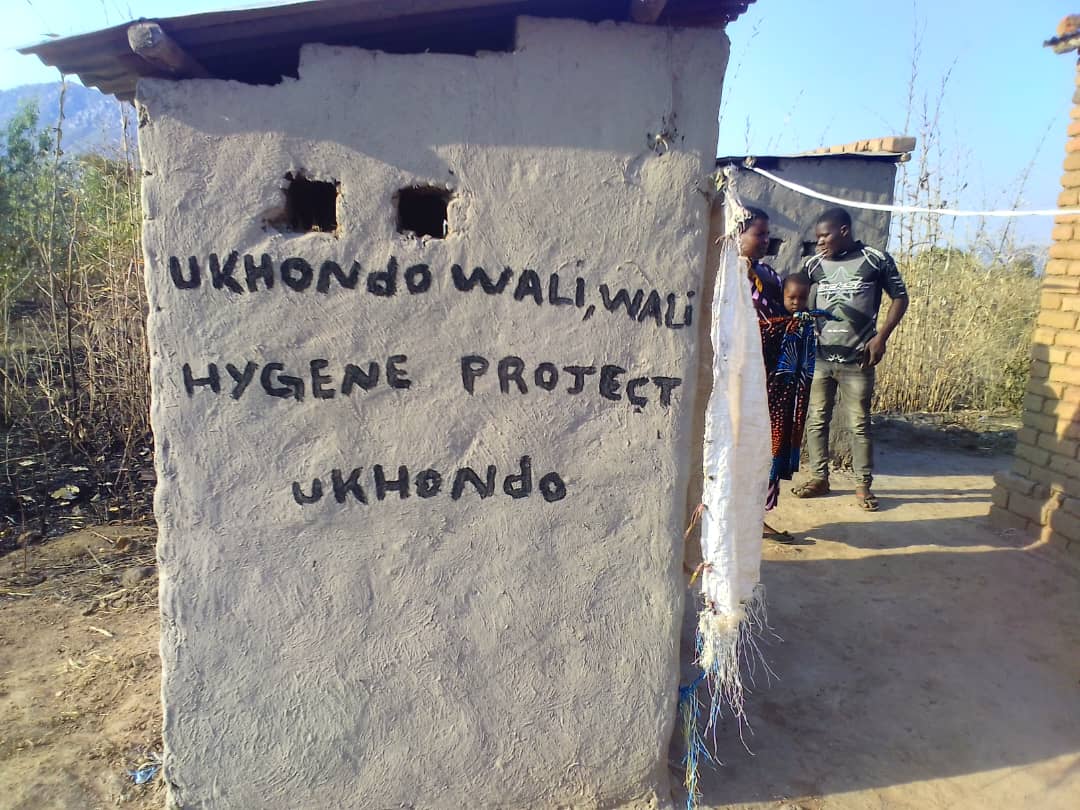 UKHONDO WALI, WALI
HYGENE PROJECT
UKHONDO